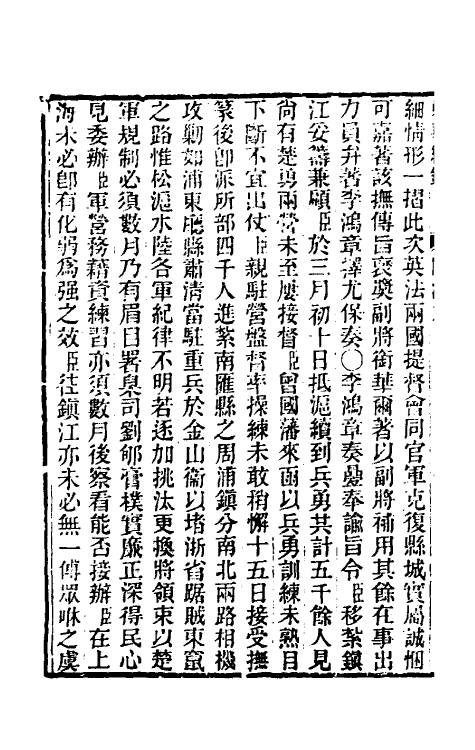 細情形一摺此次英法兩國提督會同官軍克復縣城實屬誠悃
可嘉著該撫傳旨褒獎副將銜華爾著以副將補用其餘在事出
力員弁著李鴻章擇尤保奏○李鴻章奏疊奉諭旨令臣移紮鎮
江妥籌兼顧臣於三月初十日抵滬續到兵勇共計五千餘人見
尚有楚勇兩營未至屢接督臣曾國藩來函以兵勇訓練未熟目
下斷不宜出仗臣親駐營盤督率操練未敢稍懈十五日接受撫
篆後卽派所部四千人進紮南匯縣之周浦鎮分南北兩路相機
攻勦如浦東廳縣肅清當駐重兵於金山衞以堵浙省踞賊東竄
之路惟松滬水陸各軍紀律不明若逐加挑汰更換將領束以楚
軍規制必須數月乃有眉目署臬司劉郇膏樸實廉正深得民心
見委辦臣軍營務藉資練習亦須數月後察看能否接辦臣在上
海未必卽有化弱爲强之效臣往鎮江亦未必無一傅眾咻之虞